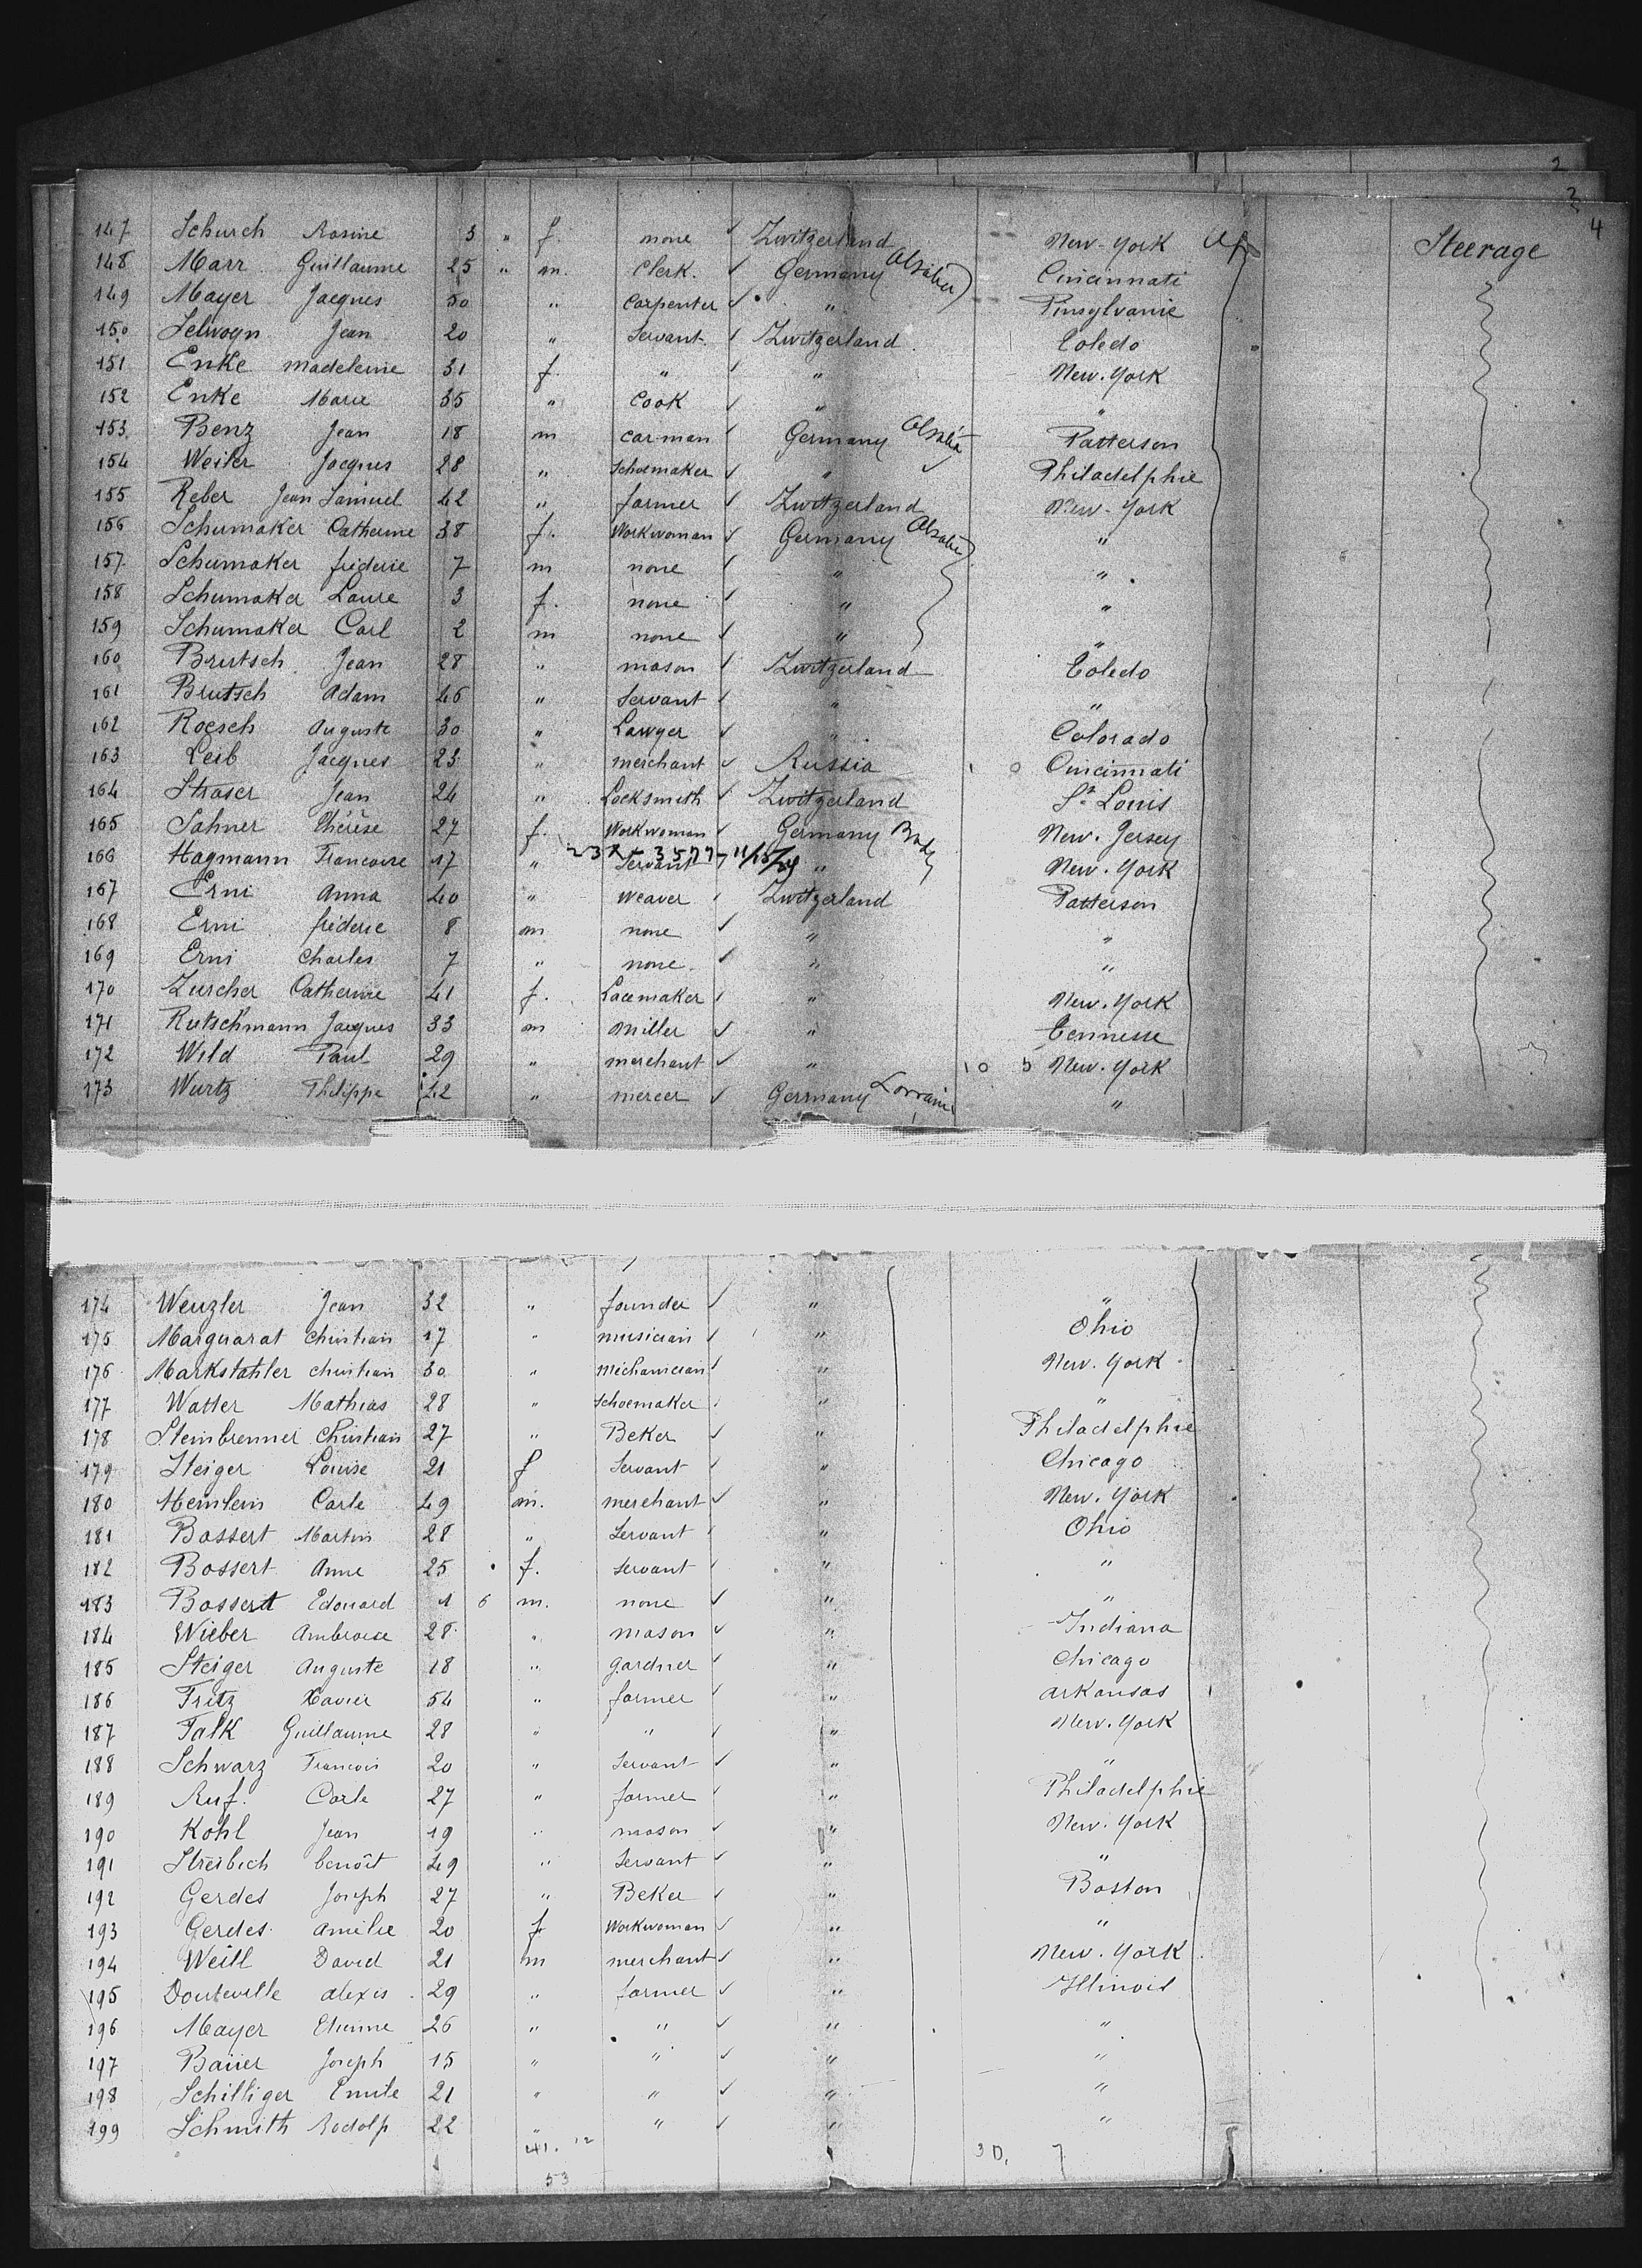 2
3
4
147 Schurch Rosine 3 " f. none ✓ Zwitzerland New-York Steerage
148 Marr Guillaume 25 " m. Clerk. ✓ Germany Alsatia Cincinnati
149 Mayer Jacques 50 " carpenter ✓ " Pinsylvanie
150 Selwogn Jean 20 " Servant. ✓ Zwitzerland. Toledo
151 Enke madeleine 31 f. " ✓ " New.York
152 Enke Marie 35 " Cook ✓ " "
153 Benz Jean 18 m carman ✓ Germany Alsatia Patterson
154 Weiler Jacques 28 " Schoemaker ✓ " Philadelphie
155 Reber Jean Samuel 42 " farmer ✓ Zwitzerland New-York
156 Schumaker Catherine 38 f. Workwoman ✓ Germany Alsatia "
157 Schumaker fréderic 7 m none ✓ " "
158 Schumaker Laure 3 f. none ✓ " "
159 Schumaker Carl 2 m none ✓ " "
160 Brutsch Jean 28 " mason ✓ Zwitzerland Toledo
161 Brutsch Adam 46 " Servant ✓ " "
162 Roesch Auguste 30 " Lawyer ✓ " Colorado
163 Leib Jacques 23 " merchant ✓ Russia Cincinnati
164 Straser Jean 24 " Locksmith ✓ Zwitzerland St. Louis
165 Sahner Thérèse 27 f. Workwoman ✓ Germany New.Jersey
166 Hagmann Francoise 17 " Servant " New.York
167 Erni Anna 40 " Weaver ✓ Zwitzerland Patterson
168 Erni fréderic 8 m none ✓ " "
169 Erni Charles 7 " none. ✓ " "
170 Zurcher Catherine 41 f. Lacemaker ✓ " New.York
171 Rutschmann Jacques 33 m Miller ✓ " Tennesse
172 Wild Paul 29 " merchant ✓ " New.York
173 Wurtz Philippe 42 " mercer ✓ Germany Lorraine "
174 Wenzler Jean 32 " founder ✓ " "
175 Marquarat Christian 17 " musician ✓ " Ohio
176 Markstahler christian 30 " Mechanician ✓ " New.York
177 Watter Mathias 28 " Schoemaker " "
178 Steinbrenner Christian 27 " Beker ✓ " Philadelphie
179 Steiger Louise 21 f Servant ✓ " Chicago
180 Hemlein Carle 49 m. merchant ✓ " New.York
181 Bossert Martin 28 " Servant ✓ " Ohio
182 Bossert Anne 25 f. Servant ✓ " "
183 Bossert Edouard 1 6 m. none ✓ " "
184 Wieber Ambroise 28 " mason ✓ " Indiana
185 Steiger Auguste 18 " gardner ✓ " Chicago
186 Fritz Xavier 54 " farmer ✓ " arkansas
187 Falk Guillaume 28 " " ✓ " New.York
188 Schwarz Francois 20 " Servant ✓ " "
189 Ruf. Carle 27 " farmer ✓ " Philadelphie
190 Kohl Jean 19 " mason ✓ " New.York
191 Streibich benoît 49 " Servant ✓ " "
192 Gerdes Joseph 27 " Beker ✓ " Boston
193 Gerdes amélie 20 f Workwoman ✓ " "
194 Weill David 21 m merchant ✓ " New.York
195 Douteville alexis 29 " farmer ✓ " Illinois
196 Mayer Etienne 26 " " ✓ " "
197 Bauer Joseph 15 " " ✓ " "
198 Schilliger Emile 21 " " ✓ " "
199 Schmith Rodolp 22 " " ✓ " "
41. 12
53
30. 7